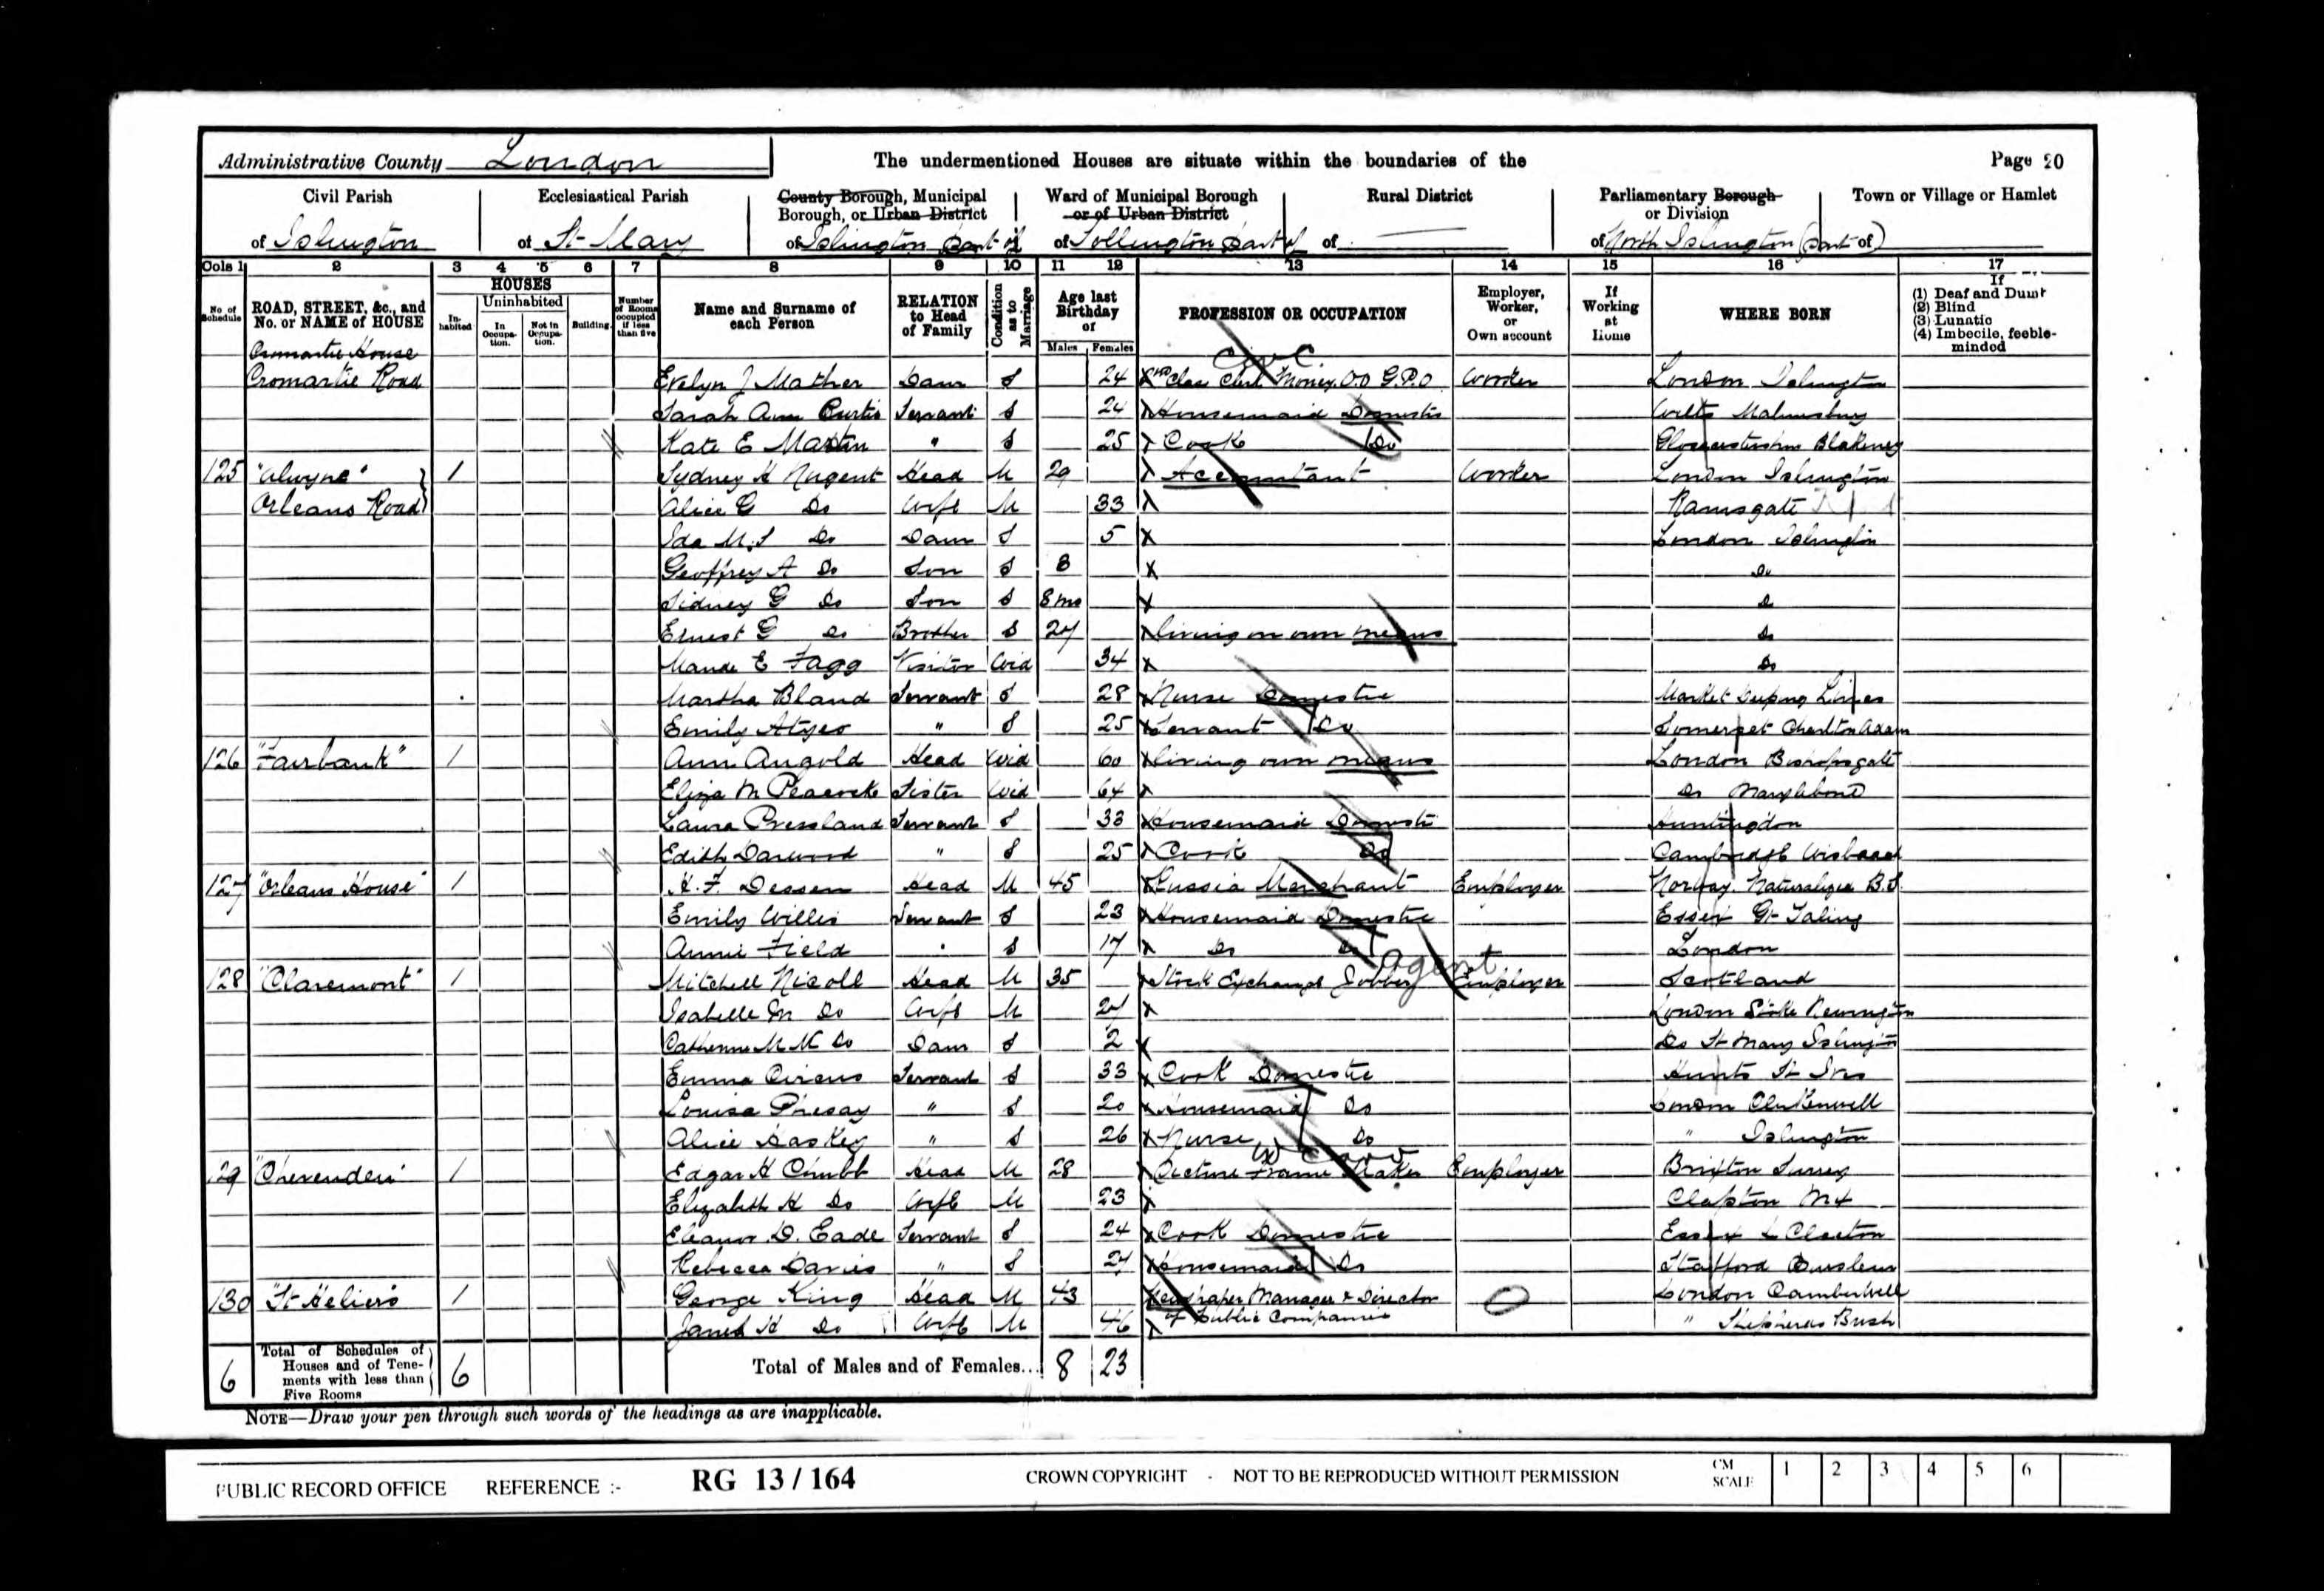 Administrative County London The undermentioned Houses are situate within the boundaries of the Page 20
Civil Parish Ecclesiastical Parish County Borough, Municipal Borough, or Urban District Ward of Municipal Borough or of Urban District Rural District Parliamentary Borough or Division Town or Village or Hamlet
of Islington of St Mary of Islington part of of Tollington part of of of North Islington (part of)
Cols 1 2 3 4 5 6 7 8 9 10 11 12 13 14 15 16 17
No of Schedule ROAD, STREET, &c., and No. or NAME of HOUSE HOUSES Inhabited Uninhabited In Occupation. Not in Occupation. Building. Number of Rooms occupied if less than five Name and Surname of each Person RELATION to Head of Family Condition as to Marriage Age last Birthday of Males Females PROFESSION OR OCCUPATION Employer, Worker, or Own account If Working at Home WHERE BORN If (1) Deaf and Dumb (2) Blind (3) Lunatic (4) Imbecile, feeble-minded
Cromartie House
Cromartie Road Evelyn J Mather Daur S 24 Clerk Money O.O G.P.O Worker London Islington
Sarah Ann Curtis Servant S 24 Housemaid Domestic Wilts Malmesbury
Kate E Martin " S 25 Cook Do Gloucestershire Blakeney
125 "Alwyne" 1 Sydney H Nugent Head M 29 Accountant Worker London Islington
Orleans Road Alice G Do Wife M 33 Ramsgate
Ida M. S Do Daur S 5 London Islington
Geoffrey A Do Son S 3 Do
Sidney G Do Son S 8 mo Do
Ernest G Do Brother S 27 living on own means Do
Maude E Fagg Visitor Wid 34 Do
Martha Bland Servant S 28 Nurse Domestic Market Deeping Lincs
Emily Atyeo " S 25 Servant Do Somerset Charlton Adam
126 "Fairbank" 1 Ann Angold Head Wid 60 living own means London Bishopsgate
Eliza M Peacock Sister Wid 64 Do Marylebone
Laura Pressland Servant S 33 Housemaid Domestic Huntingdon
Edith Darwood " S 25 Cook Do Cambridge Wisbeach
127 "Orleans House" 1 H. F. Dessen Head M 45 Russia Merchant Employer Norway Naturalized B.S.
Emily Willis Servant S 23 Housemaid Domestic Essex Gt Saling
Annie Field " S 17 Do Do London
128 "Claremont" 1 Mitchell Nicoll Head M 35 Stock Exchange Jobber agent Employer Scotland
Isabelle M Do Wife M London Stoke Newington
Catherine M M Do Daur S 2 Do St Mary Islington
Emma Servant S 33 Cook Domestic Hunts St Ives
Louisa " S 20 Housemaid Do London Clerkenwell
Alice Laskey " S 26 Nurse Do " Islington
129 1 Edgar H Chubb Head M 28 Picture Frame Maker Employer Brixton Surrey
Elizabeth H Do Wife M 23 Clapton Mx
Eleanor D. Eade Servant S 24 Cook Domestic Essex Clacton
Rebecca Davies " S 24 Housemaid Do Stafford Burslem
130 "St Heliers 1 George King Head M 43 Newspaper Manager & Director London Camberwell
Janet H Do Wife M 46 of Public Companies " Shepherds Bush
6 Total of Schedules of Houses and of Tenements with less than Five Rooms 6 Total of Males and of Females... 8 23
NOTE—Draw your pen through such words of the headings as are inapplicable.
PUBLIC RECORD OFFICE REFERENCE :- RG 13 / 164 CROWN COPYRIGHT - NOT TO BE REPRODUCED WITHOUT PERMISSION CM SCALE 1 2 3 4 5 6